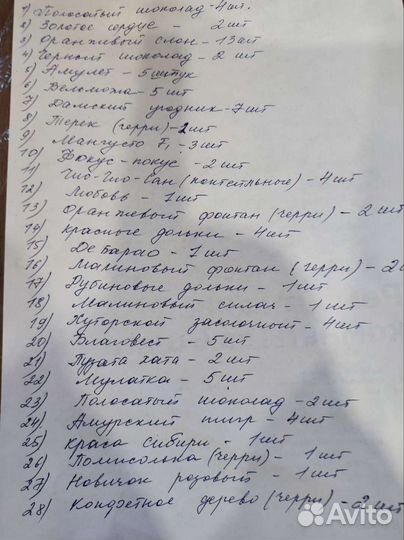 1) Полосатый шоколад - 4 шт.
2) Золотое сердце - 2 шт
3) Оранжевый слон - 13 шт
4) Чёрный шоколад - 2 шт
5) Амулет - 5 штук
6) Вельможа - 5 шт
7) Дамский угодник - 7 шт
8) Терек (черри) - 2 шт
9) Мангусто F1 - 3 шт
10) Фокус-покус - 2 шт
11) Чио-Чио-Сан (коктейльные) - 4 шт
12) Любовь - 1 шт
13) Оранжевый фонтан (черри) - 2 шт
14) Красные дольки - 4 шт
15) Де Барао - 1 шт
16) Малиновый фонтан (черри) - 2
17) Рубиновые дольки - 1 шт
18) Малиновый силач - 1 шт
19) Хуторской засолочный - 4 шт
20) Благовест - 5 шт
21) Пузата хата - 2 шт
22) Мулатка - 5 шт
23) Полосатый шоколад - 2 шт
24) Амурский тигр - 4 шт
25) Краса Сибири - 1 шт
26) Помисолька (черри) - 1 шт
27) Новичок розовый - 1 шт
28) Конфетное дерево (черри) - 2 шт
Avito